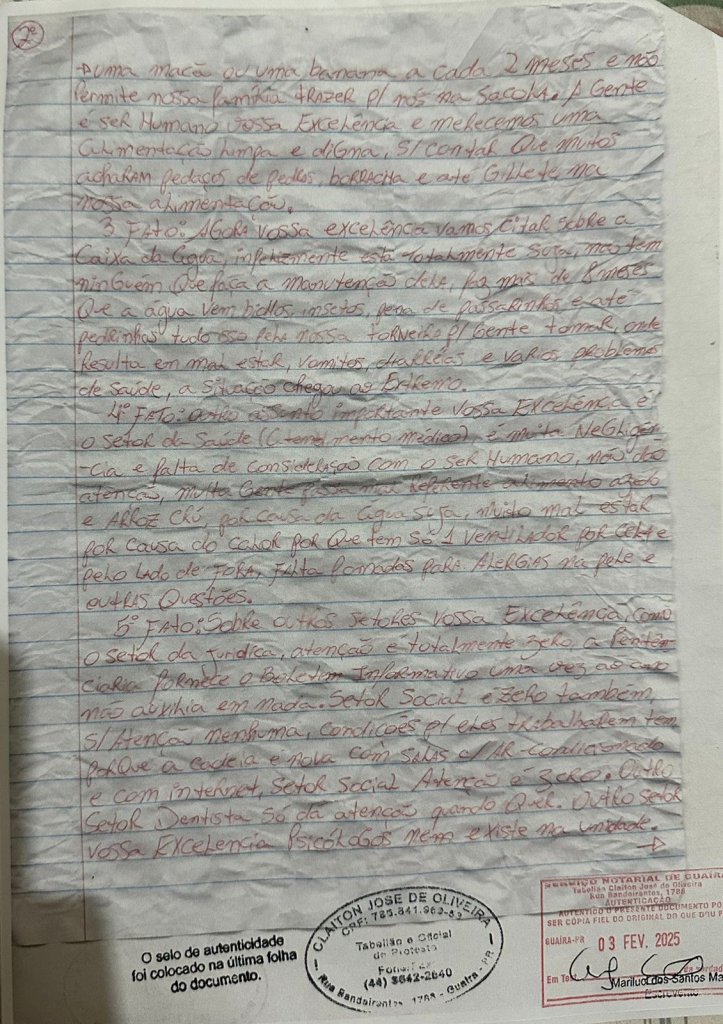 2º
→ uma maçã ou uma banana a cada 2 meses e não
Permite nossa família trazer p/ nós na sacola. A Gente
é ser Humano vossa Excelência e merecemos uma
alimentação limpa e digna, s/ contar Que muitos
acharam pedaços de pedras, borracha e até Gillete na
nossa alimentação.
3 Fato: Agora vossa excelência vamos citar sobre a
Caixa da água, infelizmente está totalmente suja, não tem
ninguém Que faça a manutenção dela, faz mais de 8 meses
Que a água vem insetos, pena de passarinhos e até
pedrinhas tudo isso pela nossa torneira p/ Gente tomar, onde
Resulta em mal estar, vomitos, diarréias e varios problemas
de saúde, a situação chegou ao Extremo.
4º Fato: outro assunto importante vossa Excelência é
o setor da Saúde (atendimento médico), é muita Negligen-
-cia e falta de consideração com o ser Humano, não dão
atenção, muita Gente passa mal referente alimento azedo
e Arroz cru, por causa da água suja, muito mal estar
por causa do calor por Que tem só 1 ventilador por cela e
pelo lado de fora, falta pomadas para Alergias na pele e
outras Questões.
5º Fato: Sobre outros setores vossa Excelência, como
o setor da jurídica, atenção é totalmente zero, a Peniten-
ciaria fornece o Boletim Informativo uma vez ao ano
não auxilia em nada. Setor Social é zero também
s/ Atenção nenhuma, condições p/ eles trabalharem tem
porque a cadeia é nova com salas c/ AR-condicionado
e com internet, setor social Atenção é zero. Outro
setor Dentista só da atenção quando Quer. Outro setor
vossa Excelencia Psicólogos nem existe na unidade.
→
O selo de autenticidade
foi colocado na última folha
do documento.
CLAITON JOSE DE OLIVEIRA
Tabelião e Oficial
de Protesto
(44) 3642-2640
Rua Bandeirantes, 1788 - Guaíra - PR
SERVIÇO NOTARIAL DE GUAÍRA
Tabelião Claiton José de Oliveira
Rua Bandeirantes, 1788
AUTENTICAÇÃO
AUTENTICO O PRESENTE DOCUMENTO PO
SER CÓPIA FIEL DO ORIGINAL DO QUE DOU F
GUAÍRA-PR 03 FEV. 2025
Em Tes da verdad
Mariluc dos Santos Ma
Escrevente